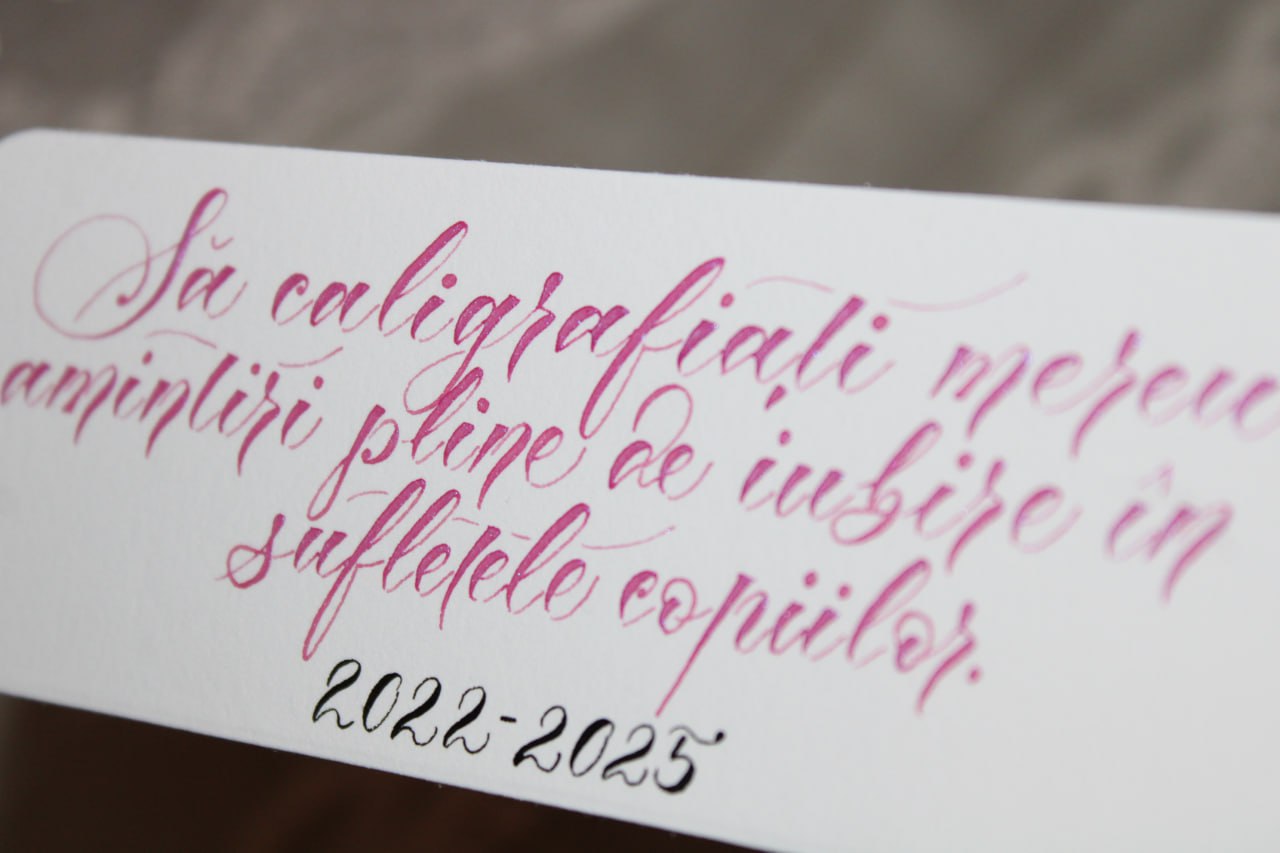 Să caligrafiați mereu
amintiri pline de iubire în
sufletele copiilor.
2022-2025